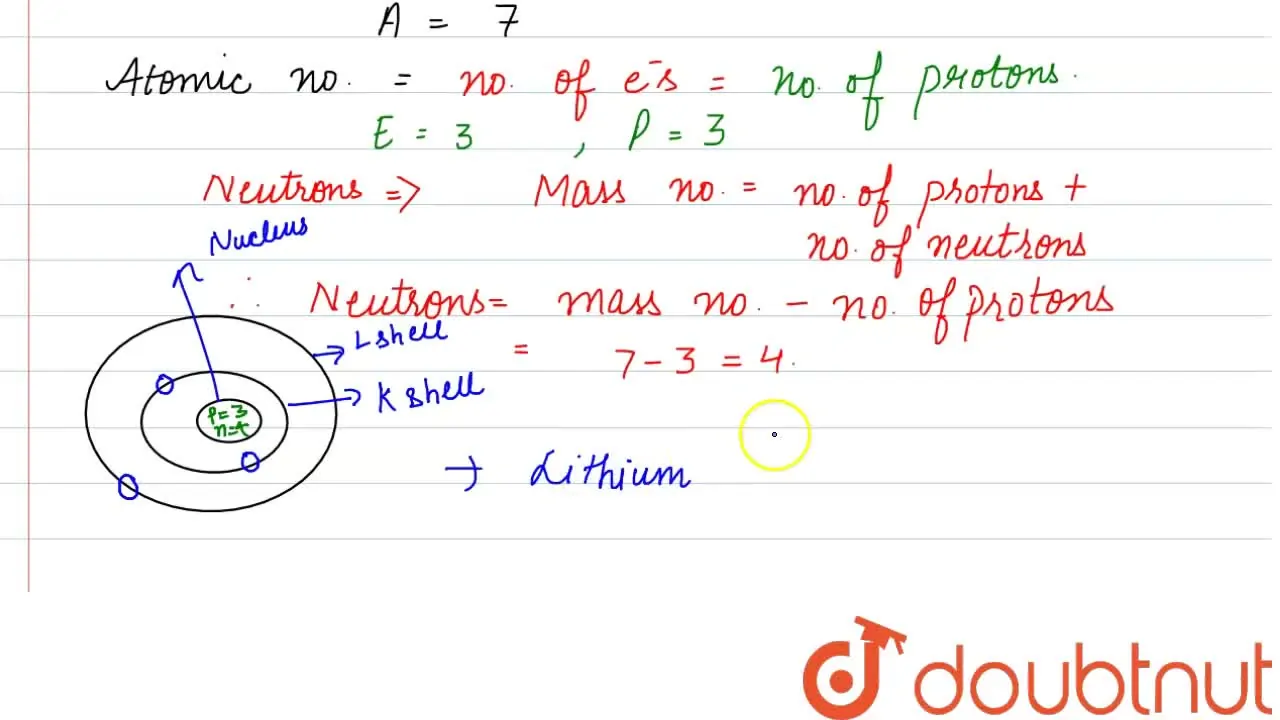 A = 7
Atomic no. = no. of e⁻s = no. of protons.
E = 3 , P = 3
Neutrons => Mass no. = no. of protons +
no. of neutrons
Nucleus
∴ Neutrons = mass no. - no. of protons
= 7 - 3 = 4.
L shell
K shell
P = 3
n = 4
→ Lithium
doubtnut